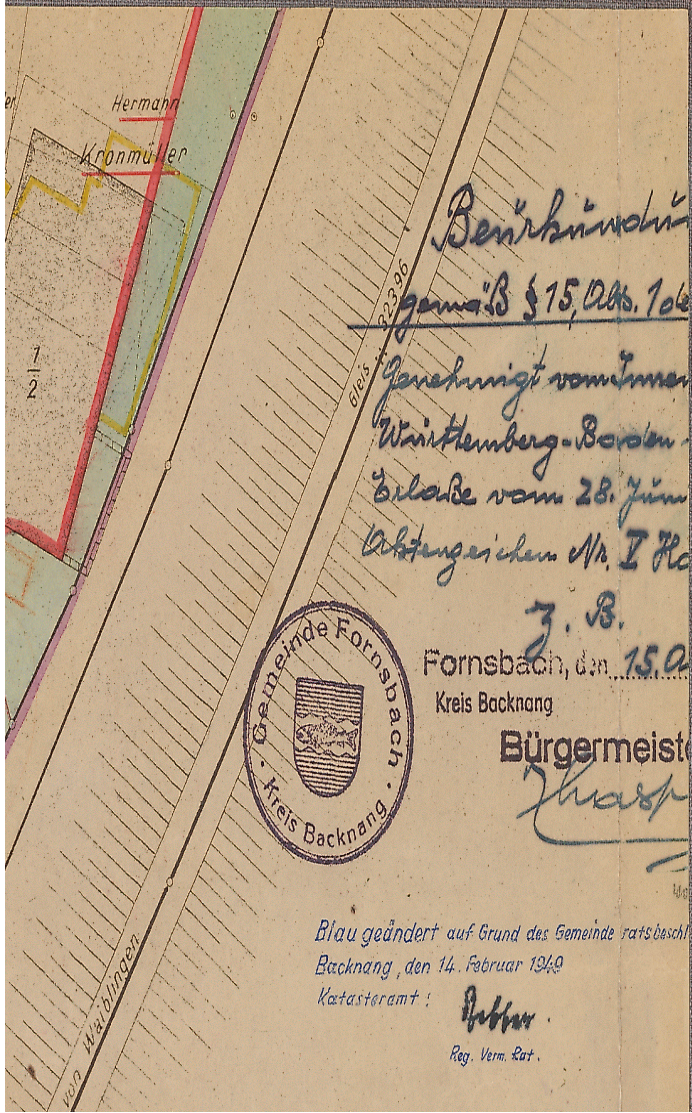 Hermann
Kronmüller
1
2
Gleis 32396
von Waiblingen
Beurkundu
gemäß § 15, Abs. 1 de
Genehmigt vom Innen
Württemberg-Baden
Erlaße vom 28. Juni
Aktenzeichen Nr. V Ho
z. B.
Fornsbach, den 15.
Kreis Backnang
Bürgermeiste
Gemeinde Fornsbach
Kreis Backnang
Blau geändert auf Grund des Gemeinderatsbeschl
Backnang, den 14. Februar 1949
Katasteramt:
Reg. Verm. Rat.